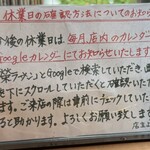 休業日の確認方法についてのお知らせ
今後の休業日は毎月、店内のカレンダー
Googleカレンダーにてお知らせいたします
ラーメン」とGoogleで検索していただき、画
下にスクロールしていただくと確認いただ
ます。ご来店の際は事前にチェックしていただ
ると助かります。よろしくお願い致します
店主